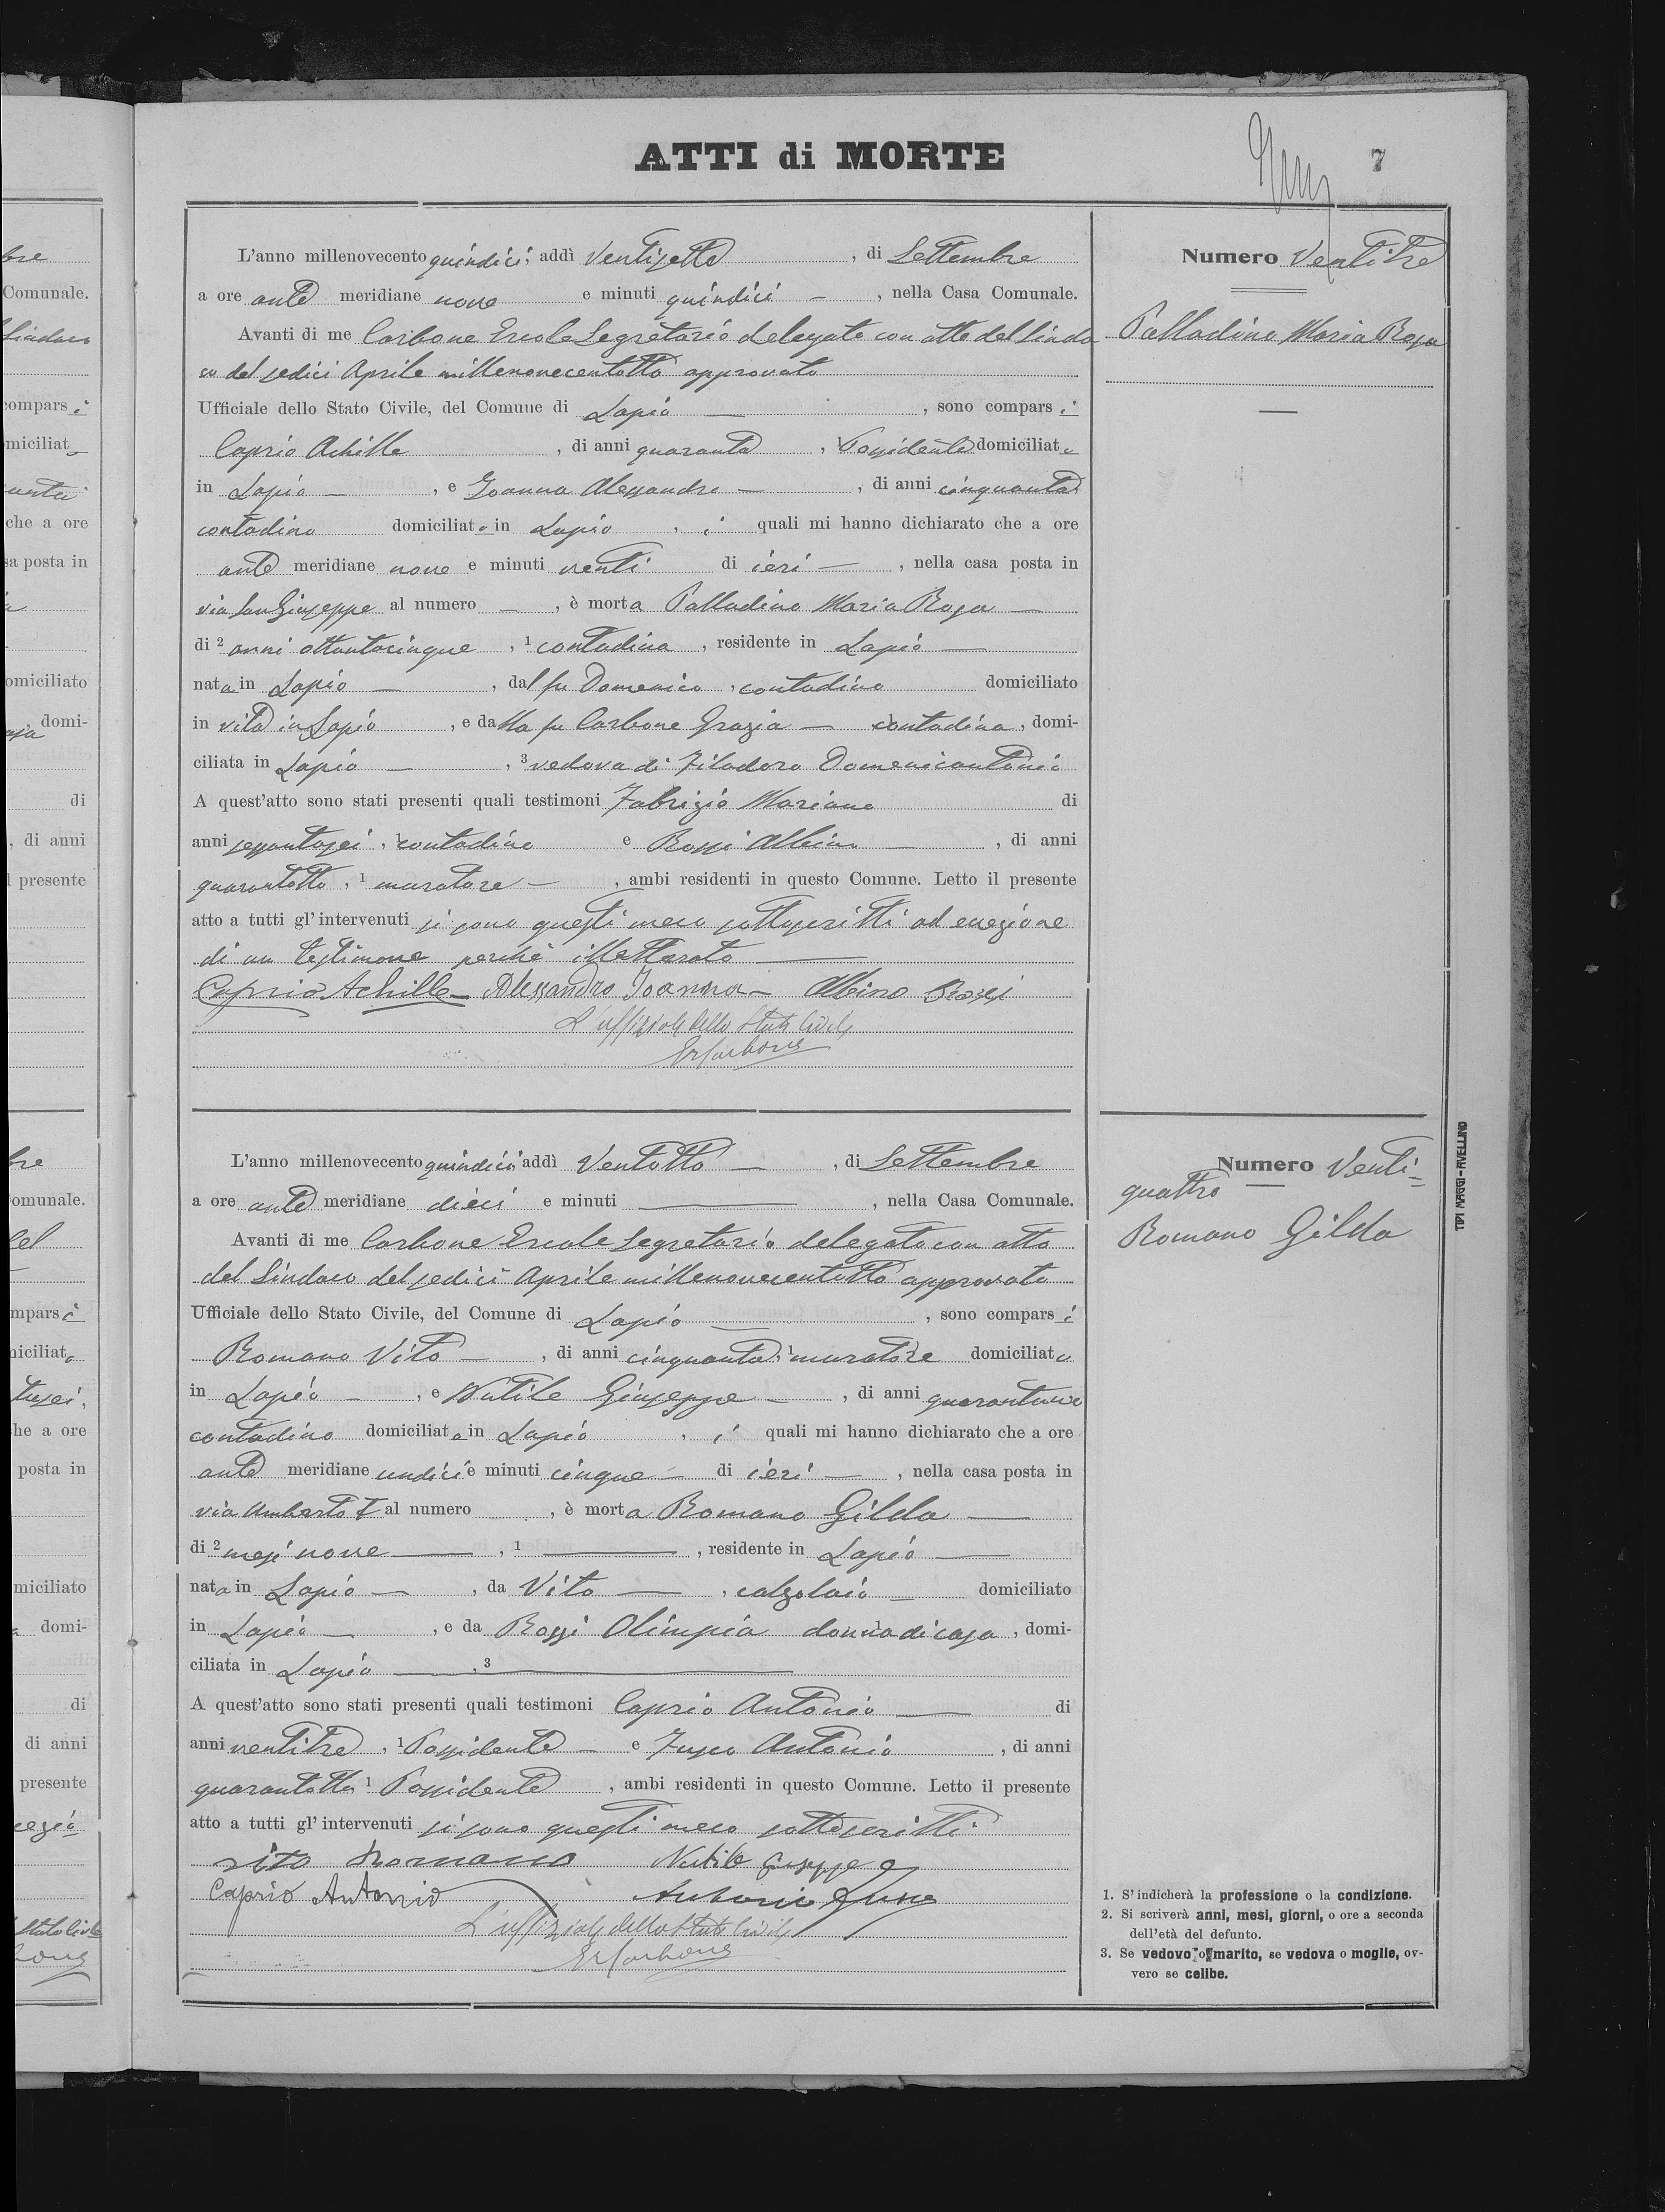 ATTI di MORTE
7
L'anno millenovecento quindici, addì Ventisette, di Settembre
a ore ante meridiane nove e minuti quindici —, nella Casa Comunale.
Avanti di me Carbone Ercole Segretario delegato con atto del Sinda
co del sedici Aprile millenovecentotto approvato
Ufficiale dello Stato Civile, del Comune di Lapio —, sono compars i
Caprio Achille, di anni quaranta, 1 Possidente domiciliato
in Lapio —, e Joanna Alessandro —, di anni cinquanta
contadino domiciliato in Lapio, i quali mi hanno dichiarato che a ore
ante meridiane nove e minuti venti di ieri —, nella casa posta in
via San Giuseppe al numero —, è morta Palladino Maria Rosa —
di 2 anni ottantacinque, 1 contadina, residente in Lapio —
nata in Lapio —, dal fu Domenico, contadino domiciliato
in vita in Lapio, e dalla fu Carbone Grazia — contadina, domi-
ciliata in Lapio —, 3 vedova di Filadoro Domenicantonio
A quest'atto sono stati presenti quali testimoni Fabrizio Mariano di
anni sessantasei, 1 contadino e Rossi Albino —, di anni
quarantotto, 1 muratore —, ambi residenti in questo Comune. Letto il presente
atto a tutti gl'intervenuti si sono questi meco sottoscritti ad eccezione
di un testimone perché illetterato —
Caprio Achille — Alessandro Joanna — Albino Rossi
L'uffiziale dello Stato Civile
ErCarbone
Numero Ventitre
Palladino Maria Rosa
L'anno millenovecento quindici addì Ventotto —, di Settembre
a ore ante meridiane dieci e minuti —, nella Casa Comunale.
Avanti di me Carbone Ercole Segretario delegato con atto
del Sindaco del sedici Aprile millenovecentotto approvato
Ufficiale dello Stato Civile, del Comune di Lapio —, sono compars i
Romano Vito —, di anni cinquanta, 1 muratore domiciliato
in Lapio —, e Nutile Giuseppe —, di anni
contadino domiciliato in Lapio, i quali mi hanno dichiarato che a ore
ante meridiane undici e minuti cinque — di ieri —, nella casa posta in
via Umberto I al numero, è morta Romano Gilda —
di 2 mesi nove —, 1 —, residente in Lapio —
nata in Lapio —, da Vito —, calzolaio — domiciliato
in Lapio —, e da Rossi Olimpia donna di casa, domi-
ciliata in Lapio —, 3 —
A quest'atto sono stati presenti quali testimoni Caprio Antonio — di
anni ventitre, 1 Possidente — e Fusco Antonio, di anni
quarantotto 1 Possidente, ambi residenti in questo Comune. Letto il presente
atto a tutti gl'intervenuti si sono questi meco sottoscritti
Vito Romano Nutile Giuseppe
Caprio Antonio Antonio Fusco
L'uffiziale dello Stato Civile
ErCarbone
Numero Venti-
quattro
Romano Gilda
1. S'indicherà la professione o la condizione.
2. Si scriverà anni, mesi, giorni, o ore a seconda
dell'età del defunto.
3. Se vedovo o marito, se vedova o moglie, ov-
vero se celibe.
TIPI MAGGI-AVELLINO